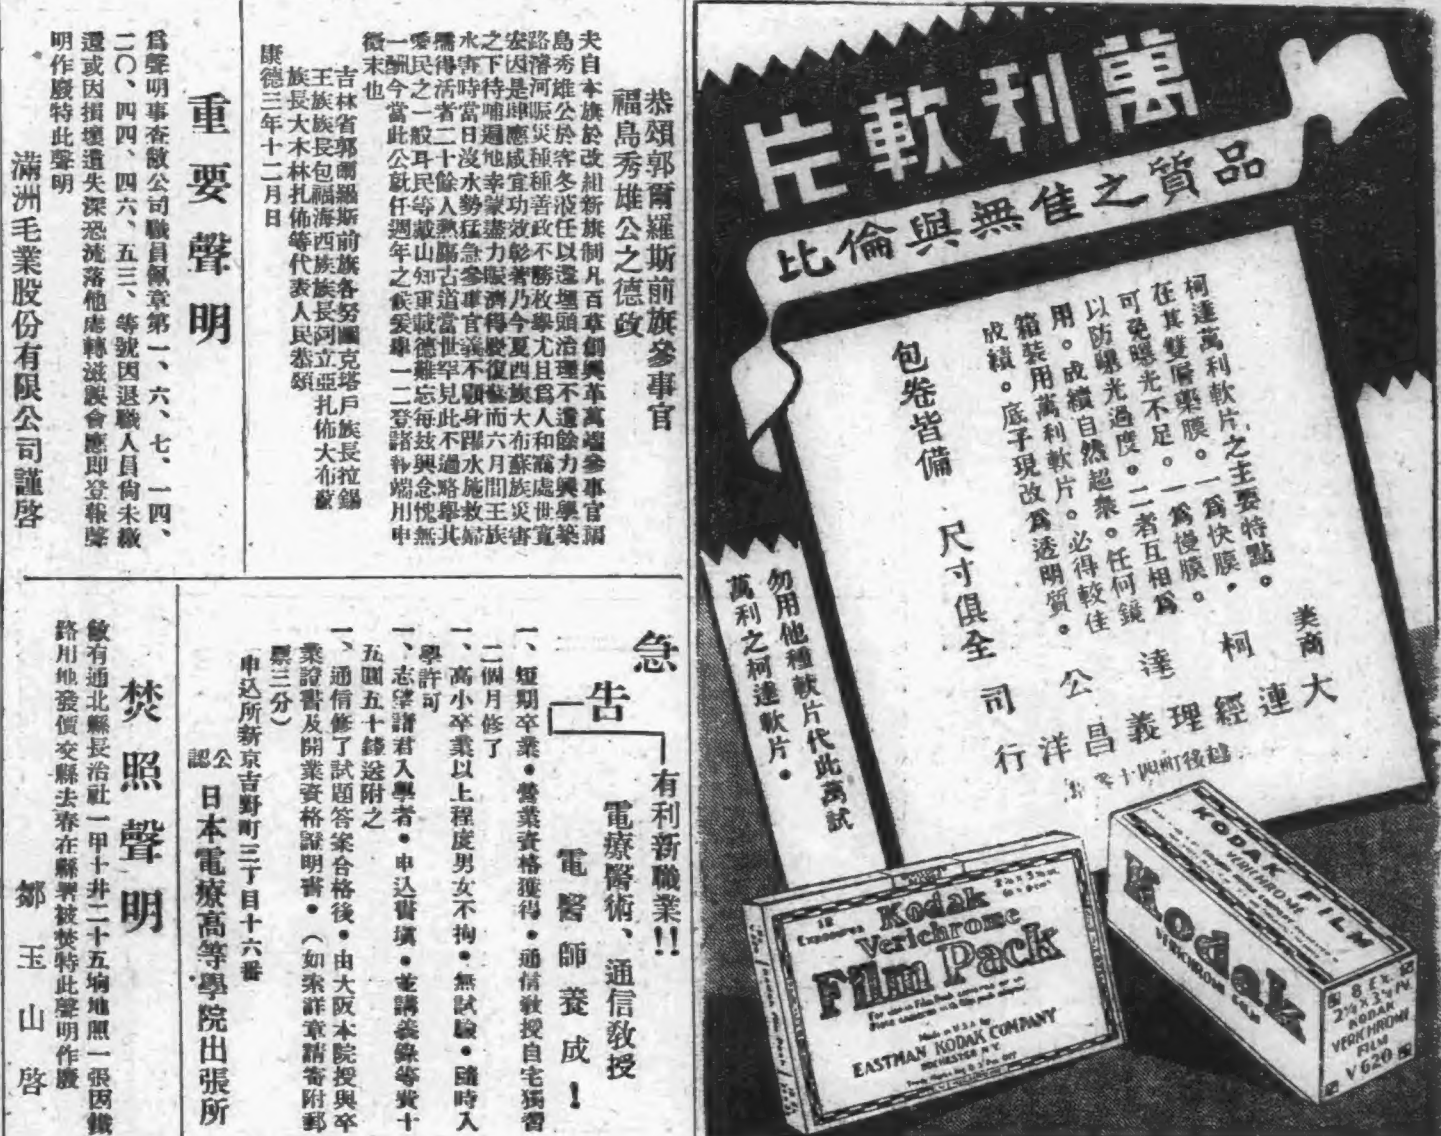 萬利軟片
品質之佳無與倫比
柯達萬利軟片之主要特點。
在其雙層藥膜。一爲快膜,
可免曝光不足。一爲慢膜。
以防曝光過度。二者互相爲
用。成績自然超衆。任何鏡
箱裝用萬利軟片。必得較佳
成績。底子現改爲透明質。
包卷皆備 尺寸俱全
美商柯達公司
大連經理義昌洋行
勿用他種軟片代此萬試
萬利之柯達軟片。
12
Exposures
Kodak
Verichrome
Film Pack
Made in U.S.A. by
EASTMAN KODAK COMPANY
ROCHESTER N.Y.
KODAK FILM
VERICHROME
Kodak
VERICHROME FILM
8 EX.
KODAK
VERICHROME
FILM
V 620
恭頌郭爾羅斯前旗參事官
福島秀雄公之德政
夫自本旗於改組新旗制凡百草創興革萬端參事官福
島秀雄公於客冬涖任以還埋頭治理不遺餘力興學築
路濬河賑災種種善政不勝枚舉尤且爲人和藹處世寬
宏因是肆應咸宜功效彰著乃今夏西族大布蘇族災害
之下待哺遍地幸蒙盡力賑濟得慶復蘇而六月間王族
水害時當日沒水勢猛急參事官義不顧身躍水施救婦
孺得活者二十餘人熱腸古道當世罕見此不過略舉其
愛民之一般耳民等戴山知重載德難忘每玆興念愧無
一酬今當此公就任週年之候爰舉一二登諸報端用申
微末也
吉林省郭爾羅斯前旗各努圖克塔戶族長拉錫
王族族長包福海西族族長阿立亞扎佈大布蘇
族長大木林扎佈等代表人民恭頌
康德三年十二月日
重要聲明
爲聲明事查敝公司職員佩章第一、六、七、一四、
二〇、四四、四六、五三、等號因退職人員尙未繳
還或因損壞遺失深恐流落他處轉滋誤會應即登報聲
明作廢特此聲明
滿洲毛業股份有限公司謹啓
急告
有利新職業!!
電療醫術、通信敎授
電醫師養成!
一、短期卒業。營業資格獲得。通信敎授自宅獨習
二個月修了
一、高小卒業以上程度男女不拘。無試驗。隨時入
學許可
一、志望諸君入學者。申込書塡。並講義錄等費十
五圓五十錢送附之
一、通信修了試題答案合格後。由大阪本院授與卒
業證書及開業資格證明書。(如索詳章請寄附郵
票三分)
申込所新京吉野町三丁目十六番
公認 日本電療高等學院出張所
焚照聲明
敝有通北縣長治社一甲十井二十五坰地照一張因鐵
路用地發價交縣去春在縣署被焚特此聲明作廢
鄒玉山啓